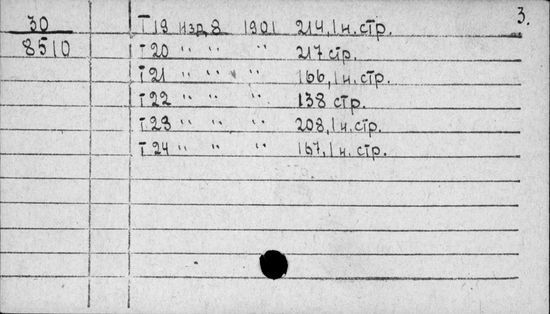 3.
30
8510
Т 19 изд. 8 1901 214, 1 н. стр.
Т 20 " " " 217 стр.
Т 21 " " " 166, 1 н. стр.
Т 22 " " " 138 стр.
Т 23 " " " 208, 1 н. стр.
Т 24 " " " 167, 1 н. стр.